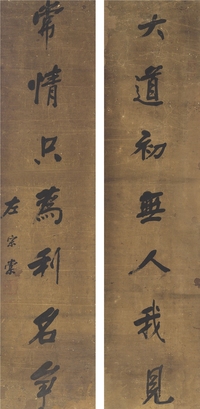 大道初無人我見
常情只為利名爭
左宗棠